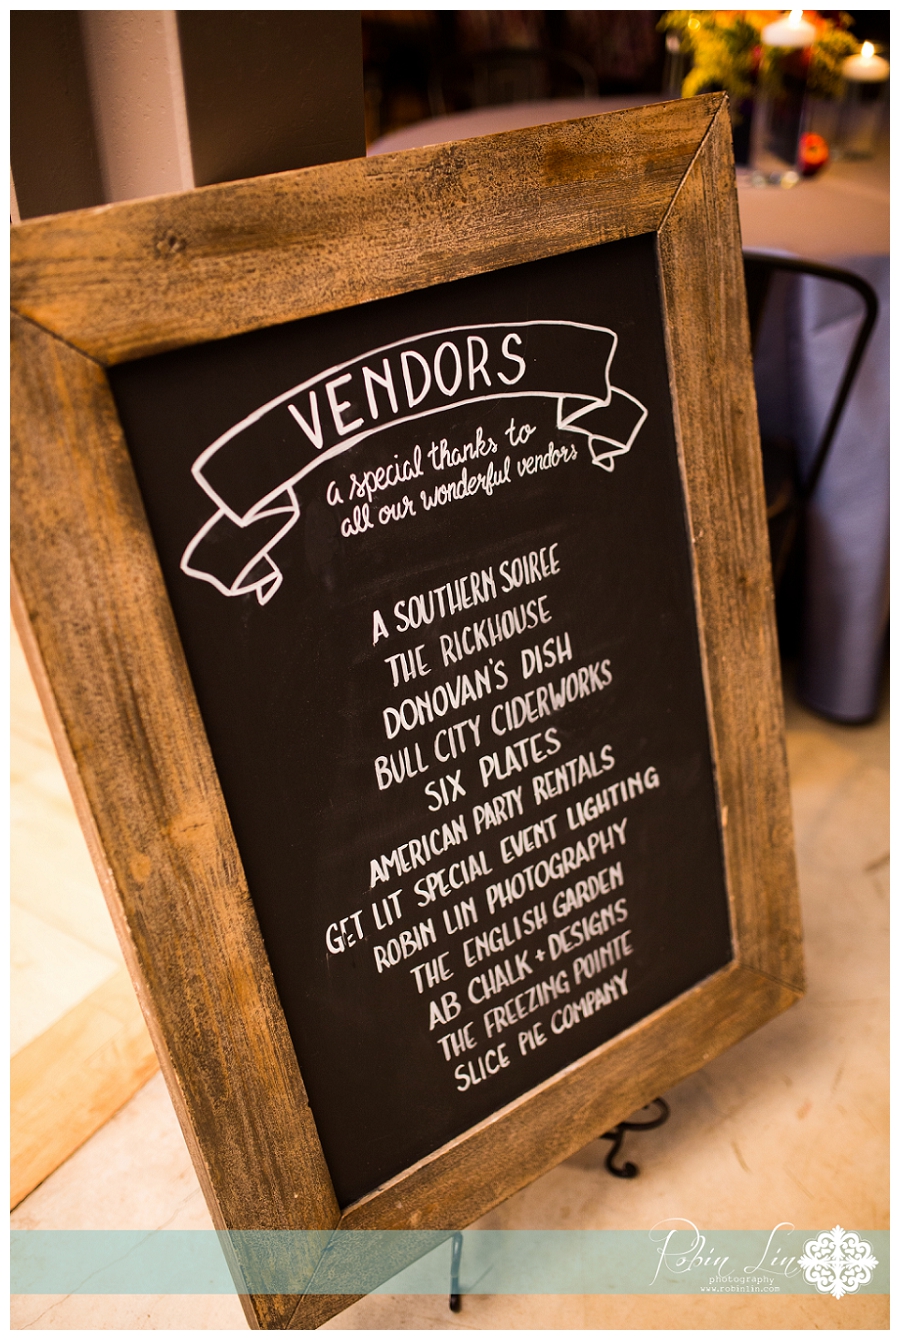 VENDORS
a special thanks to
all our wonderful vendors
A SOUTHERN SOIREE
THE RICKHOUSE
DONOVAN'S DISH
BULL CITY CIDERWORKS
SIX PLATES
AMERICAN PARTY RENTALS
GET LIT SPECIAL EVENT LIGHTING
ROBIN LIN PHOTOGRAPHY
THE ENGLISH GARDEN
AB CHALK + DESIGNS
THE FREEZING POINTE
SLICE PIE COMPANY
Robin Lin
photography
www.robinlin.com